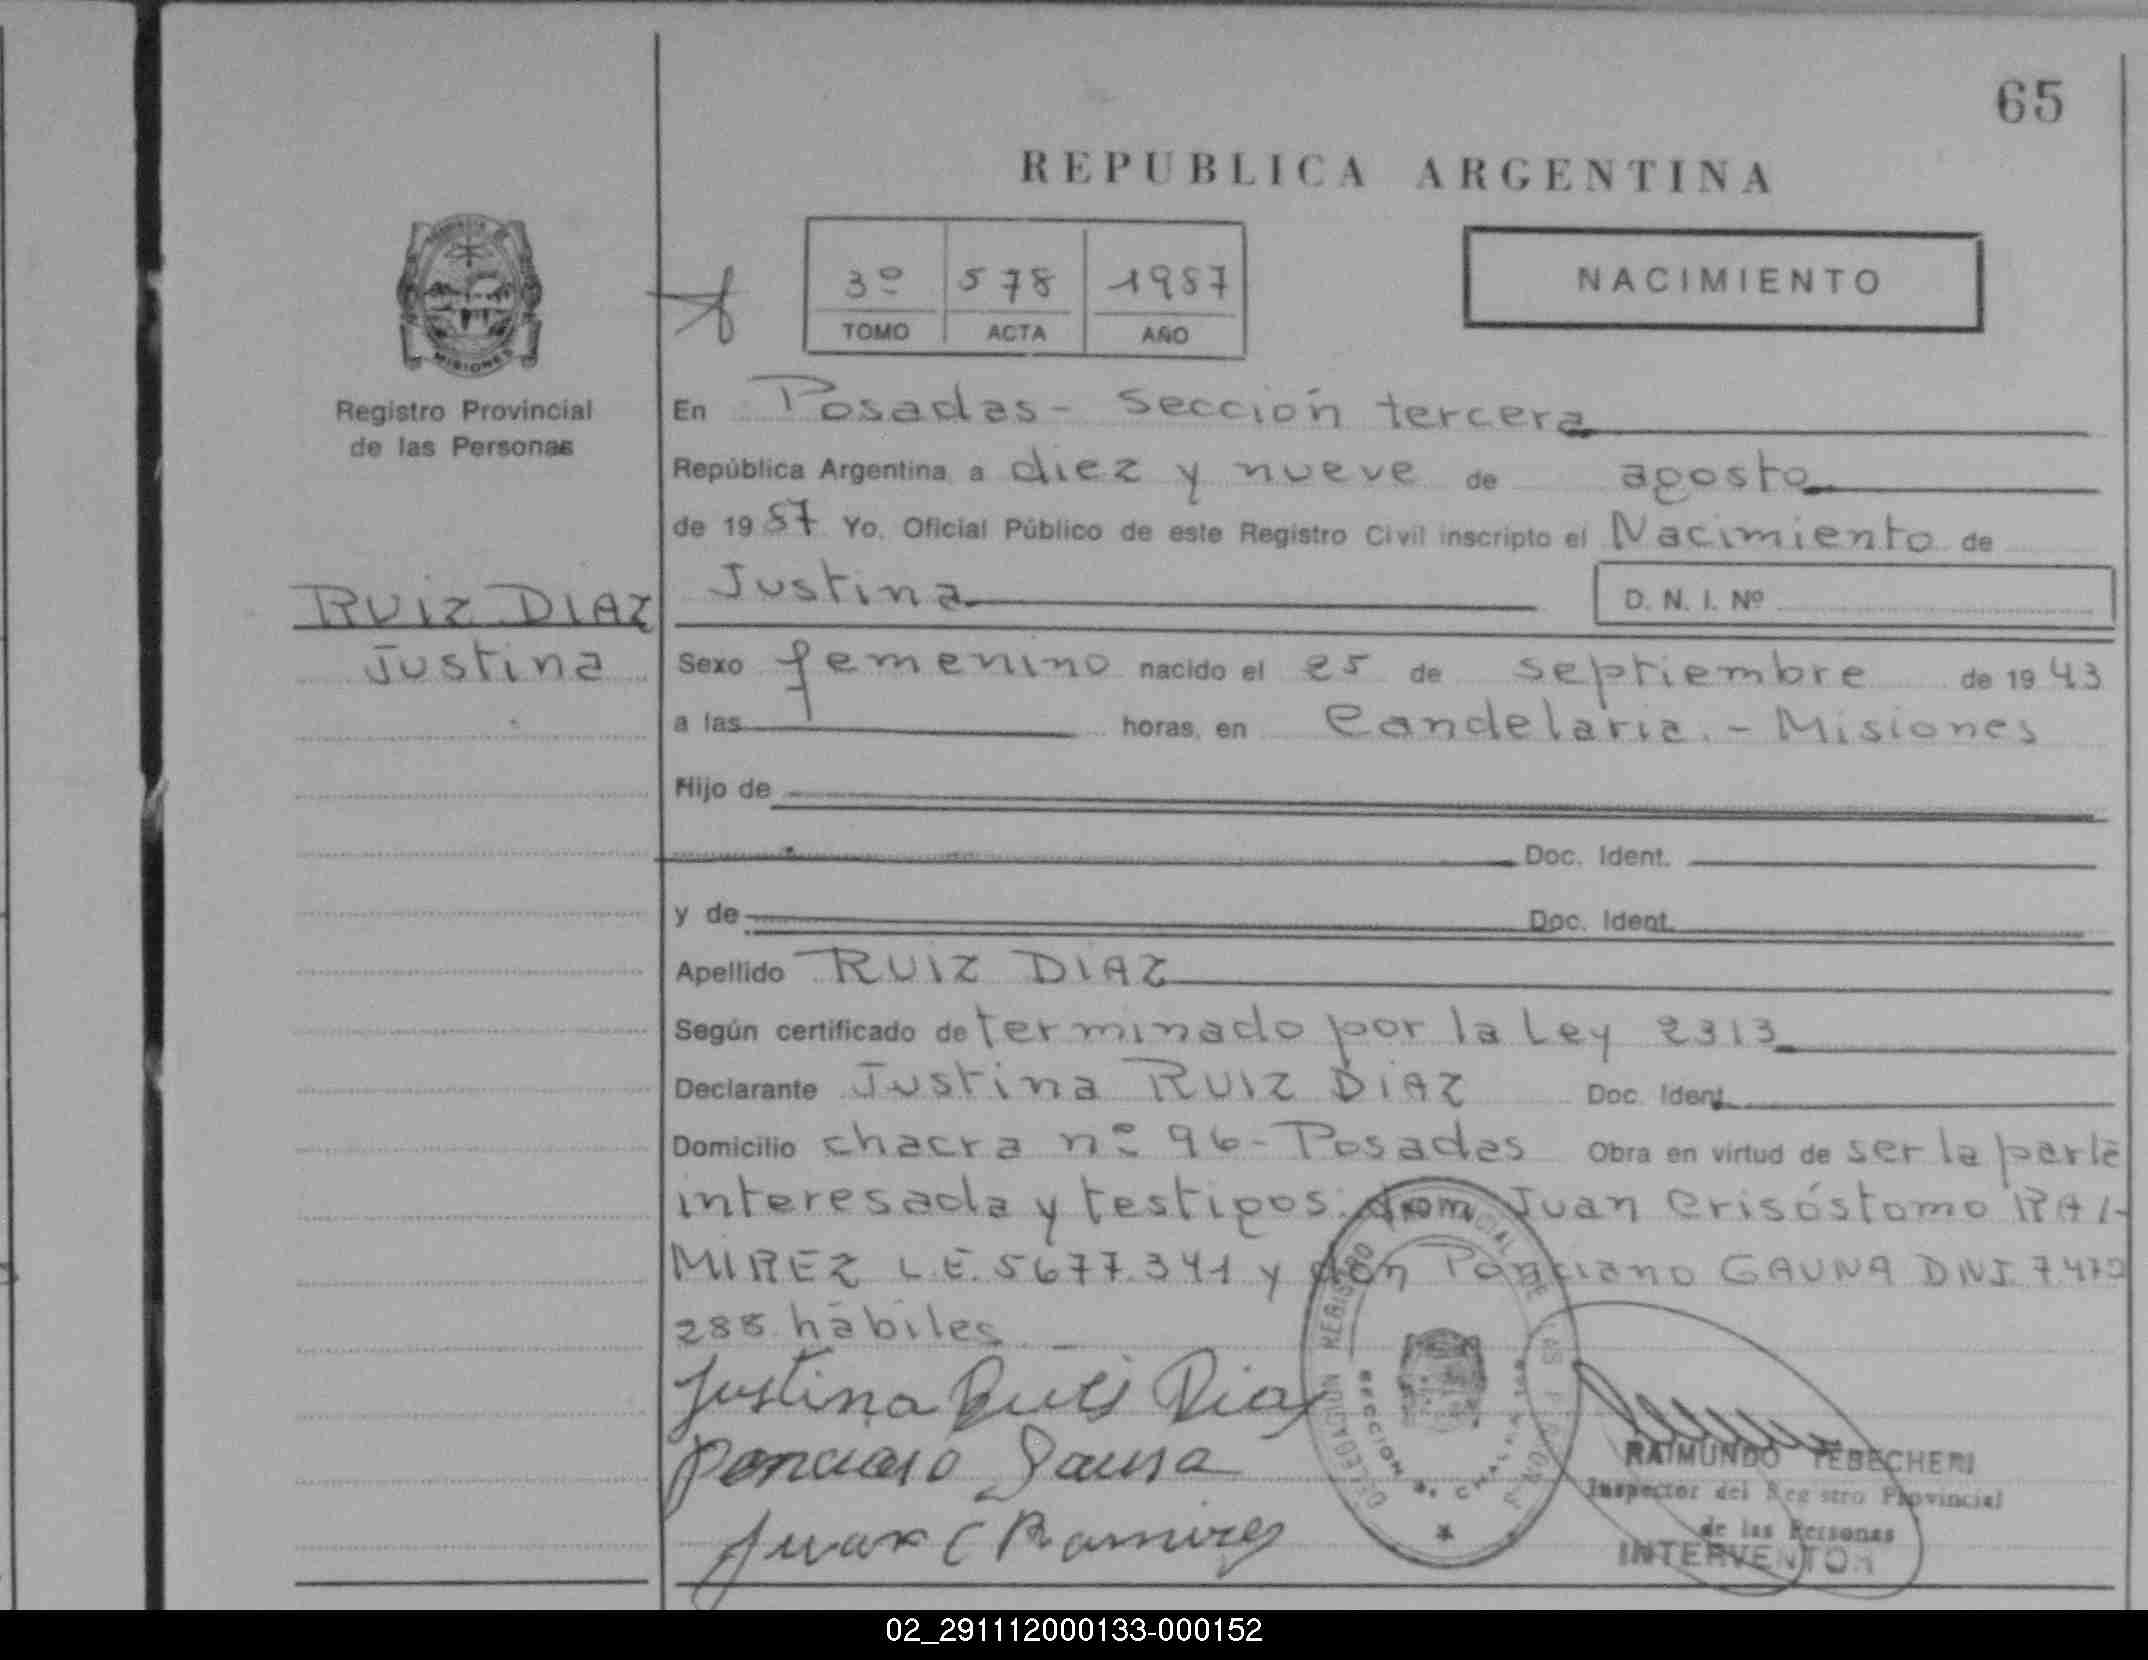 65
REPUBLICA ARGENTINA
3º 578 1987
TOMO ACTA AÑO
NACIMIENTO
MISIONES
Registro Provincial
de las Personas
En Posadas - Sección tercera
República Argentina a diez y nueve de agosto
de 19 87 Yo. Oficial Público de este Registro Civil inscripto el Nacimiento de
Justina
D. N. I. Nº
RUIZ DIAZ
Justina
Sexo femenino nacido el 25 de septiembre de 19 43
a las horas, en Candelaria. - Misiones
Hijo de
Doc. Ident.
y de Doc. Ident.
Apellido RUIZ DIAZ
Según certificado determinado por la Ley 2313
Declarante Justina RUIZ DIAZ Doc. Ident.
Domicilio chacra nº 96 - Posadas Obra en virtud de ser la parte
interesada y testigos: don Juan Crisóstomo RA
MIREZ L.E. 5677.341 y don Ponciano GAUNA DNI 7.472
288 hábiles
Justina Ruis Dias
Ponciano Gauna
Juan C Ramirez
DELEGACION REGISTRO PROVINCIAL DE LAS PERSONAS
SECCION
RAIMUNDO TEBECHERI
Inspector del Registro Provincial
de las Personas
INTERVENTOR
02_291112000133-000152